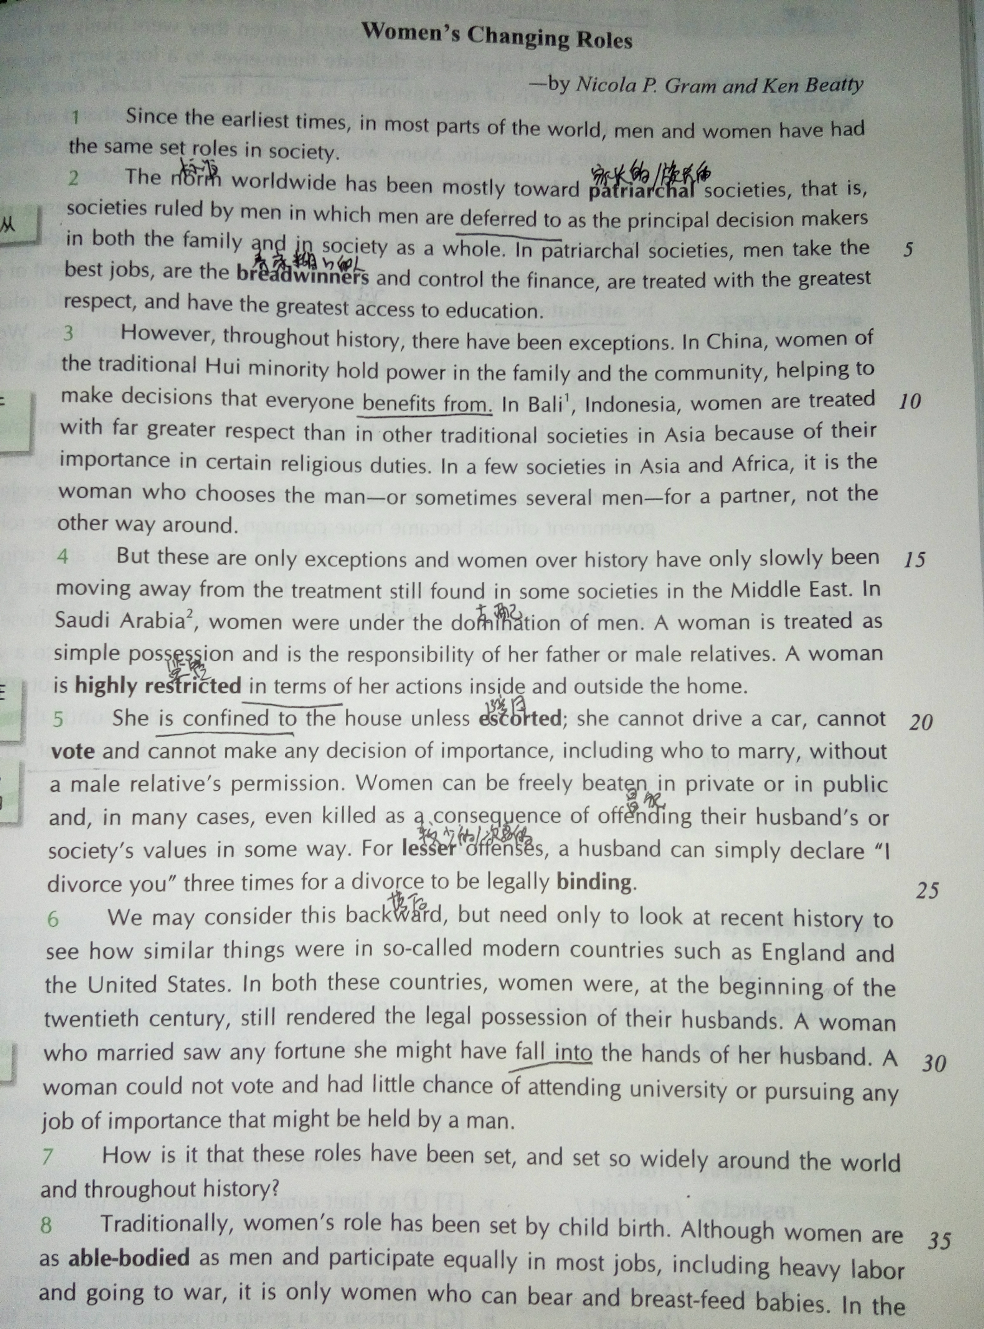 Women's Changing Roles
—by Nicola P. Gram and Ken Beatty
1 Since the earliest times, in most parts of the world, men and women have had
the same set roles in society.
标准
家长的/族长的
2 The norm worldwide has been mostly toward patriarchal societies, that is,
societies ruled by men in which men are deferred to as the principal decision makers
in both the family and in society as a whole. In patriarchal societies, men take the 5
best jobs, are the breadwinners and control the finance, are treated with the greatest
respect, and have the greatest access to education.
3 However, throughout history, there have been exceptions. In China, women of
the traditional Hui minority hold power in the family and the community, helping to
make decisions that everyone benefits from. In Bali¹, Indonesia, women are treated 10
with far greater respect than in other traditional societies in Asia because of their
importance in certain religious duties. In a few societies in Asia and Africa, it is the
woman who chooses the man—or sometimes several men—for a partner, not the
other way around.
4 But these are only exceptions and women over history have only slowly been 15
moving away from the treatment still found in some societies in the Middle East. In
支配
Saudi Arabia², women were under the domination of men. A woman is treated as
simple possession and is the responsibility of her father or male relatives. A woman
is highly restricted in terms of her actions inside and outside the home.
5 She is confined to the house unless escorted; she cannot drive a car, cannot 20
vote and cannot make any decision of importance, including who to marry, without
a male relative's permission. Women can be freely beaten in private or in public
冒犯
and, in many cases, even killed as a consequence of offending their husband's or
society's values in some way. For lesser offenses, a husband can simply declare "I
divorce you" three times for a divorce to be legally binding. 25
落后
6 We may consider this backward, but need only to look at recent history to
see how similar things were in so-called modern countries such as England and
the United States. In both these countries, women were, at the beginning of the
twentieth century, still rendered the legal possession of their husbands. A woman
who married saw any fortune she might have fall into the hands of her husband. A 30
woman could not vote and had little chance of attending university or pursuing any
job of importance that might be held by a man.
7 How is it that these roles have been set, and set so widely around the world
and throughout history?
8 Traditionally, women's role has been set by child birth. Although women are 35
as able-bodied as men and participate equally in most jobs, including heavy labor
and going to war, it is only women who can bear and breast-feed babies. In the
从